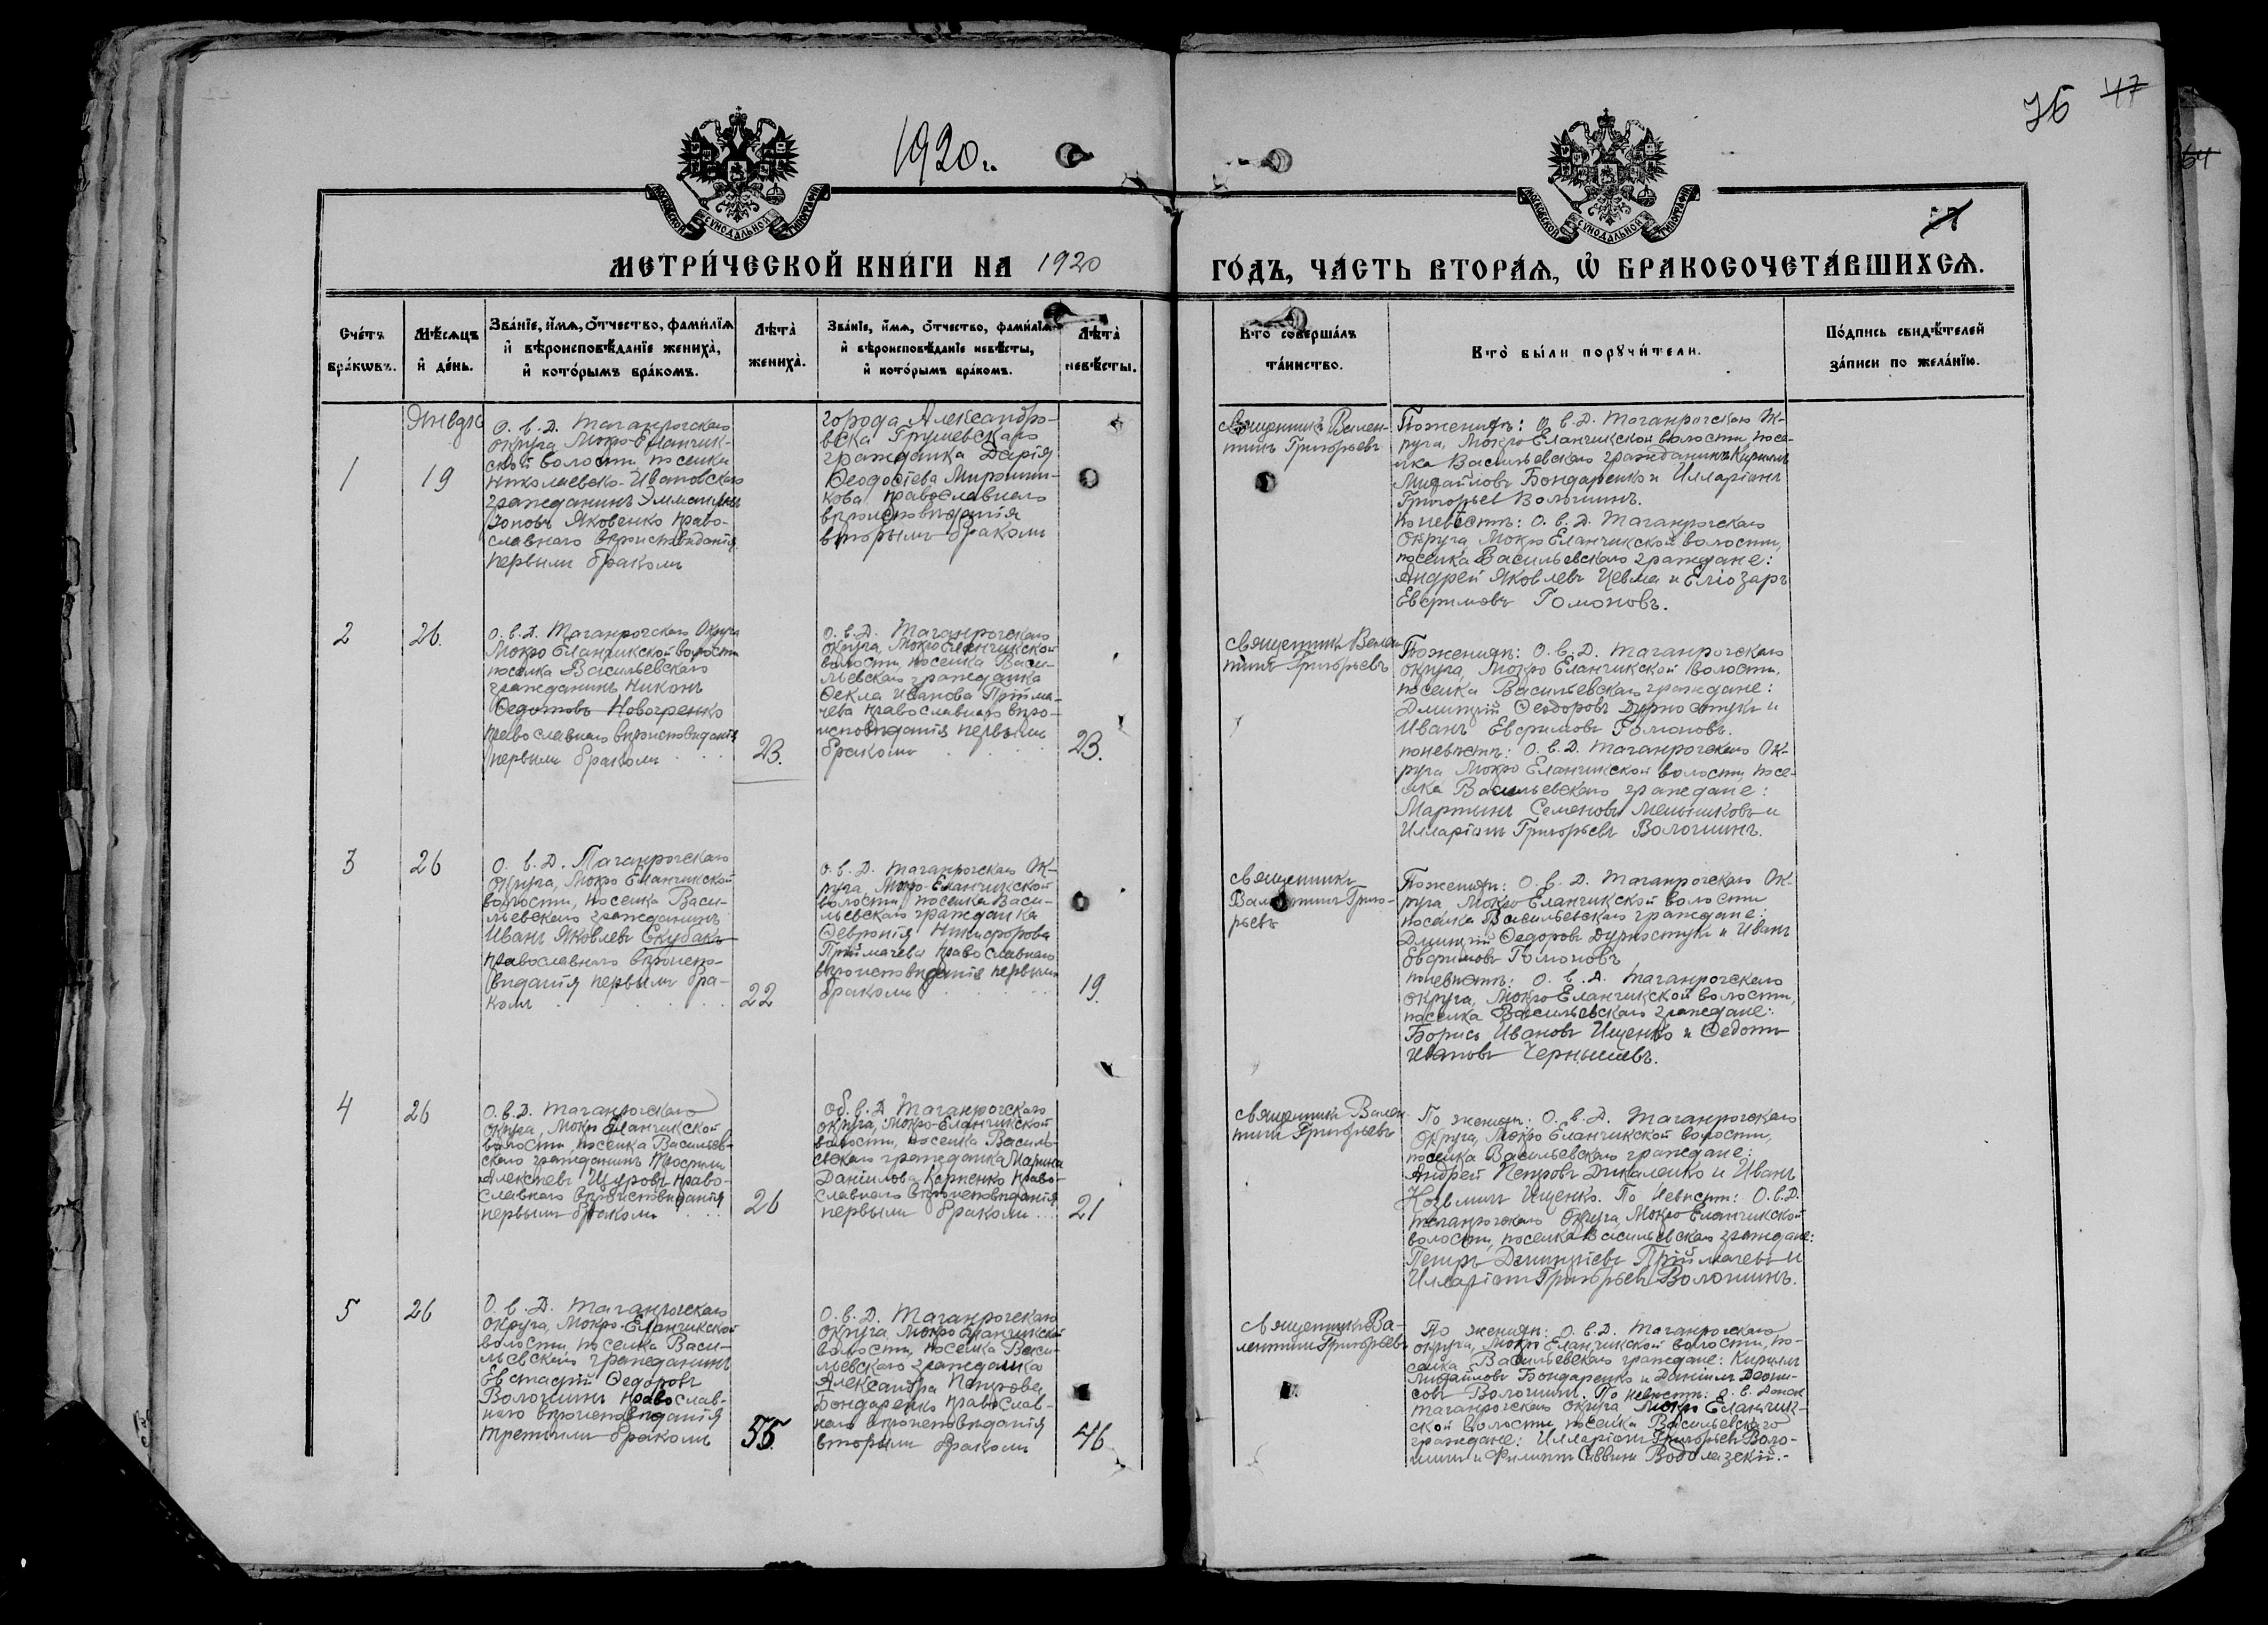 1920 г.
76 47
64
57
МОСКОВСКОЙ СѴНОДАЛЬНОЙ ТИПОГРАФІИ
МОСКОВСКОЙ СѴНОДАЛЬНОЙ ТИПОГРАФІИ
МЕТРИ́ЧЕСКОЙ КНИ́ГИ НА 1920 ГО́ДЪ, ЧА́СТЬ ВТОРА́Я, Ѡ҆ БРАКОСОЧЕТА́ВШИХСЯ.
Сче́тъ
бра́кѡвъ.
Мѣ́сяцъ
и҆ де́нь.
Зва́нїе, и҆́мя, ѻ҆́тчество, фами́лїя
и҆ вѣроисповѣ́данїе жениха̀,
и҆ кото́рымъ бра́комъ.
Лѣта̀
жениха̀.
Зва́нїе, и҆́мя, ѻ҆́тчество, фами́лїя
и҆ вѣроисповѣ́данїе невѣ́сты,
и҆ кото́рымъ бра́комъ.
Лѣта̀
невѣ́сты.
Кто̀ соверша́лъ
та́инство.
Кто̀ бы́ли порꙋчи́тели.
По́дпись свидѣ́телей
за́писи по жела́нїю.
Января
1
19
О. в. Д. Таганрогскаго
округа Мокро-Еланчик-
ской волости поселка
Николаевско-Ивановскаго
гражданинъ Эммануилъ
Іоновъ Яковенко право-
славнаго вѣроисповѣданія
первымъ бракомъ
города Александро-
вска Грушевскаго
гражданка Дарія
Ѳеодосіева Мирошни-
кова православнаго
вѣроисповѣданія
вторымъ бракомъ
Священникъ Вален-
тинъ Григорьевъ
По женихѣ: О. в. Д. Таганрогскаго Ок-
руга, Мокро Еланчикской волости, посе-
лка Васильевскаго гражданинъ Кириллъ
Михайловъ Бондаренко и Илларіонъ
Григорьев Волошинъ.
По невѣстѣ: О. в. Д. Таганрогскаго
Округа, Мокро Еланчикской волости,
поселка Васильевскаго граждане:
Андрей Яковлевъ Цевма и Еліозаръ
Евфимовъ Гомоновъ.
2
26.
О. в. Д. Таганрогскаго Округа
Мокро Еланчикской волости
поселка Васильевскаго
гражданинъ Никонъ
Ѳедотовъ Новогренко
православнаго вѣроисповѣданія
первымъ бракомъ
23.
О. в. Д. Таганрогскаго
округа, Мокро Еланчикской
волости, поселка Васи-
льевскаго гражданка
Ѳекла Иванова Прійма-
чева православнаго вѣро-
исповѣданія первымъ
бракомъ
23.
Священникъ Вален-
тинъ Григорьевъ
По женихѣ: О. в. Д. Таганрогскаго
округа, Мокро Еланчикской волости,
поселка Васильевскаго граждане:
Дмитрій Ѳеодоровъ Дурностукъ и
Иванъ Евфимовъ Гомоновъ.
По невѣстѣ: О. в. Д. Таганрогскаго Ок-
руга Мокро Еланчикской волости, посе-
лка Васильевскаго граждане:
Мартинъ Семеновъ Мельниковъ и
Илларіонъ Григорьевъ Волошинъ.
3
26
О. в. Д. Таганрогскаго
Округа, Мокро Еланчикской
волости, поселка Васи-
льевскаго гражданинъ
Иванъ Яковлевъ Скубакъ
православнаго вѣроиспо-
вѣданія первымъ бра-
комъ
22
О. в. Д. Таганрогскаго Ок-
руга, Мокро-Еланчикской
волости, поселка Васи-
льевскаго гражданка
Ѳевронія Никифорова
Приймачева православнаго
вѣроисповѣданія первымъ
бракомъ
19.
Священникъ
Валентинъ Григо-
рьевъ
По женихѣ: О. в. Д. Таганрогскаго Ок-
руга, Мокро Еланчикской волости
поселка Васильевскаго граждане:
Дмитрій Ѳедоровъ Дурностукъ и Иванъ
Евфимовъ Гомоновъ
По невѣстѣ: О. в. Д. Таганрогскаго
Округа, Мокро Еланчикской волости,
поселка Васильевскаго граждане:
Борисъ Ивановъ Ищенко и Ѳедотъ
Ивановъ Чернышевъ.
4
26
О. в. Д. Таганрогскаго
округа, Мокро Еланчикской
волости поселка Васильев-
скаго гражданинъ Трофимъ
Алексѣевъ Щуровъ право-
славнаго вѣроисповѣданія
первымъ бракомъ
26
Об. в. Д. Таганрогскаго
округа, Мокро-Еланчикской
волости, поселка Василь-
евскаго гражданка Марина
Даніилова Карпенко право-
славнаго вѣроисповѣданія
первымъ бракомъ
21
Священникъ Вален-
тинъ Григорьевъ
По женихѣ: О. в. Д. Таганрогскаго
Округа, Мокро Еланчикской волости,
поселка Васильевскаго граждане:
Андрей Петровъ Дикаленко и Иванъ
Козьминъ Ищенко. По Невѣстѣ: О. в. Д.
Таганрогскаго Округа, Мокро Еланчикской
волости, поселка Васильевскаго граждане:
Петръ Димитріевъ Пріймачевъ и
Илларіонъ Григорьевъ Волошинъ.
5
26
О. в. Д. Таганрогскаго
округа, Мокро-Еланчикской
волости, поселка Васи-
льевскаго гражданинъ
Евстафій Ѳедоровъ
Волошинъ православ-
наго вѣроисповѣданія
третьимъ бракомъ
55.
О. в. Д. Таганрогскаго
Округа, Мокро Еланчикской
волости, поселка Васи-
льевскаго гражданка
Александра Петрова
Бондаренко православ-
наго вѣроисповѣданія
вторымъ бракомъ
46
Священникъ Ва-
лентинъ Григорьевъ
По женихѣ: О. в. Д. Таганрогскаго
округа, Мокро Еланчикской волости, по-
селка Васильевскаго граждане: Кириллъ
Михайловъ Бондаренко и Даніилъ Деони-
совъ Волошинъ. По невѣстѣ: О. в. Донск
Таганрогскаго округа Мокро Еланчик-
ской волости, поселка Васильевскаго
граждане: Илларіонъ Григорьевъ Воло-
шинъ и Филиппъ Саввинъ Водолазскій.-